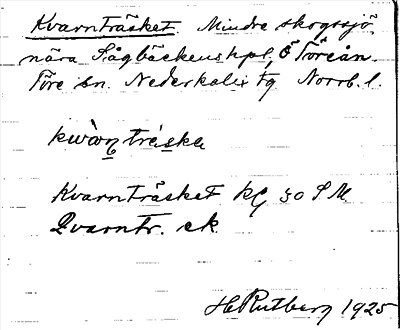 Kvarnträsket. Mindre skogssjö
nära Sågbäckens hpl, Ö Töreån.
Töre sn. Nederkalix tg Norrb. l.
kwàṇtrés̱ka
Kvarnträsket kG 30 S M
Qvarntr. ek
H Rutberg 1925